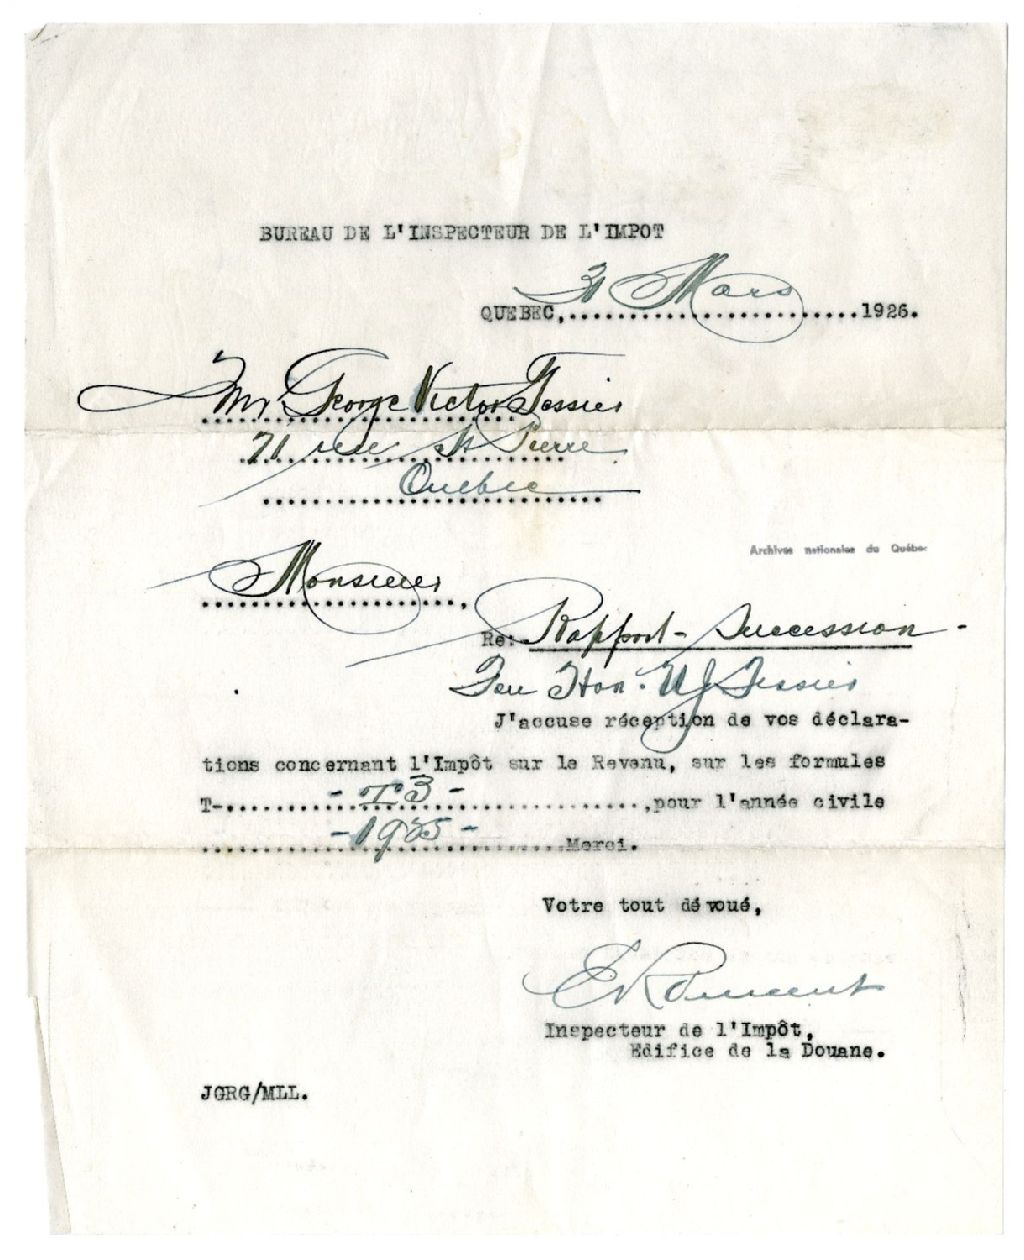 BUREAU DE L'INSPECTEUR DE L'IMPOT
31 Mars
QUEBEC,........................1926.
Mr. George Victor Tessier
71 rue St Pierre
Quebec
Archives nationales du Québec
Monsieur,
Re: Rapport - Succession -
Feu Hon. U J Tessier
J'accuse réception de vos déclara-
tions concernant l'Impôt sur le Revenu, sur les formules
T-.......... - T3 - ..................,pour l'année civile
- 1925 - ..........Merci.
Votre tout dévoué,
Inspecteur de l'Impôt,
Edifice de la Douane.
JGRG/MLL.